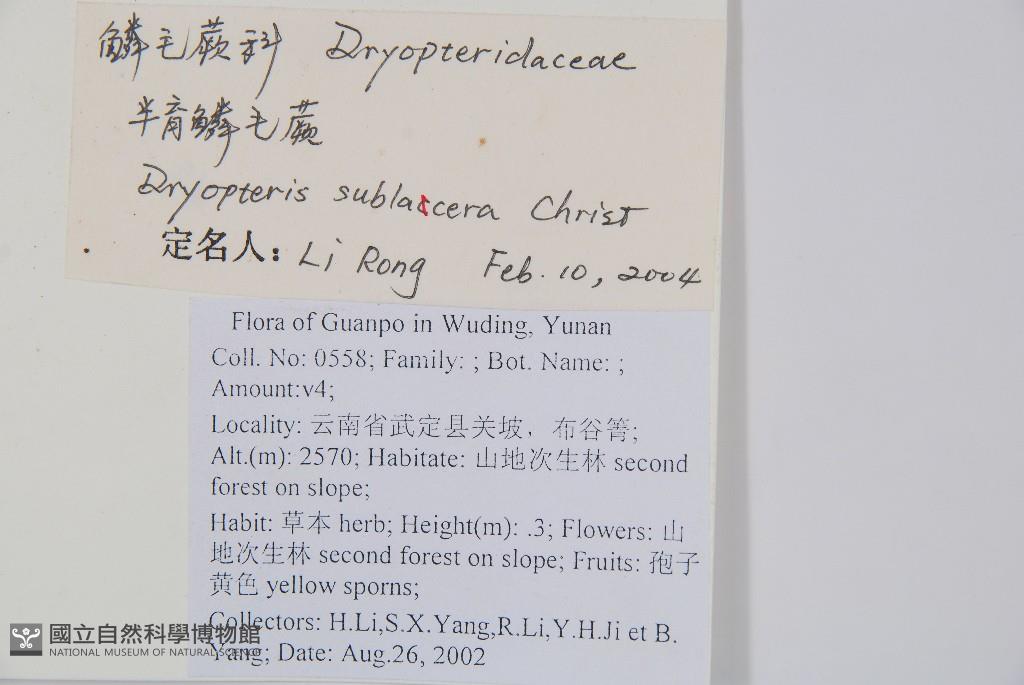 鱗毛蕨科 Dryopteridaceae
半育鱗毛蕨
Dryopteris sublaccera Christ
定名人: Li Rong Feb. 10, 2004
Flora of Guanpo in Wuding, Yunan
Coll. No: 0558; Family: ; Bot. Name: ;
Amount:v4;
Locality: 云南省武定县关坡，布谷箐;
Alt.(m): 2570; Habitate: 山地次生林 second
forest on slope;
Habit: 草本 herb; Height(m): .3; Flowers: 山
地次生林 second forest on slope; Fruits: 孢子
黄色 yellow sporns;
Collectors: H.Li,S.X.Yang,R.Li,Y.H.Ji et B.
Yang; Date: Aug.26, 2002
國立自然科學博物館
NATIONAL MUSEUM OF NATURAL SCIENCE